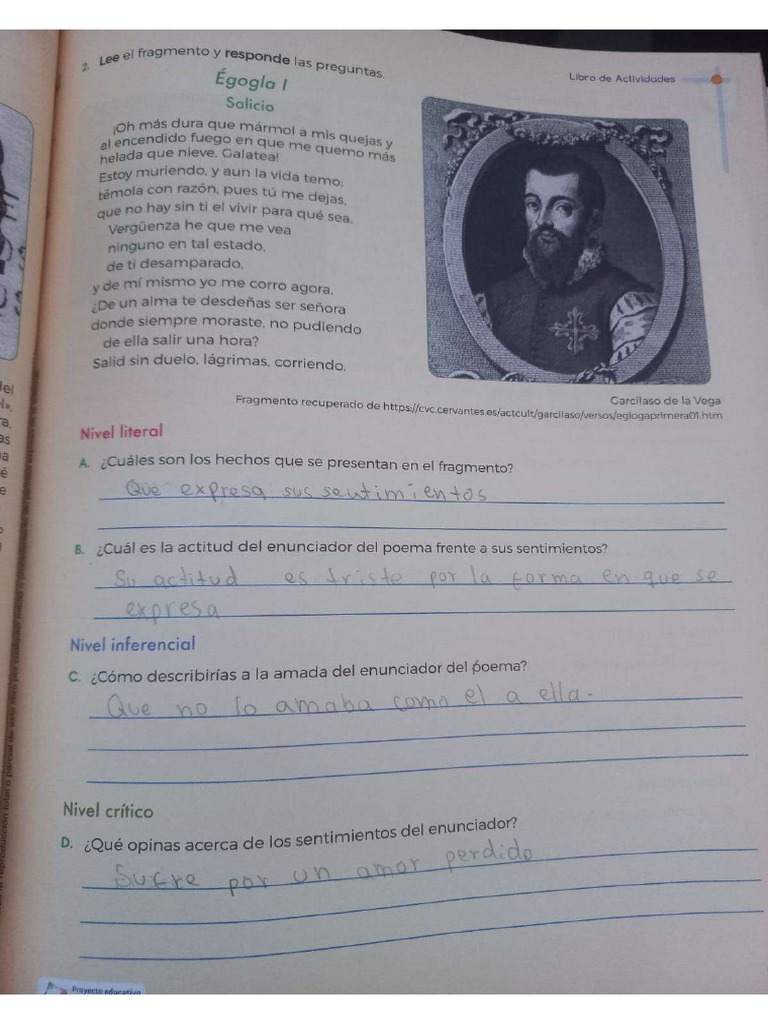 2. Lee el fragmento y responde las preguntas.
Libro de Actividades
Égogla I
Salicio
¡Oh más dura que mármol a mis quejas y
al encendido fuego en que me quemo más
helada que nieve, Galatea!
Estoy muriendo, y aun la vida temo;
témola con razón, pues tú me dejas,
que no hay sin ti el vivir para qué sea.
Vergüenza he que me vea
ninguno en tal estado,
de ti desamparado,
y de mí mismo yo me corro agora.
¿De un alma te desdeñas ser señora
donde siempre moraste, no pudiendo
de ella salir una hora?
Salid sin duelo, lágrimas, corriendo.
Garcilaso de la Vega
Fragmento recuperado de https://cvc.cervantes.es/actcult/garcilaso/versos/eglogaprimera01.htm
Nivel literal
A. ¿Cuáles son los hechos que se presentan en el fragmento?
Que expresa sus sentimientos
B. ¿Cuál es la actitud del enunciador del poema frente a sus sentimientos?
Su actitud es triste por la forma en que se
expresa
Nivel inferencial
C. ¿Cómo describirías a la amada del enunciador del poema?
Que no lo amaba como el a ella.
Nivel crítico
D. ¿Qué opinas acerca de los sentimientos del enunciador?
Sufre por un amor perdido
Proyecto educativo